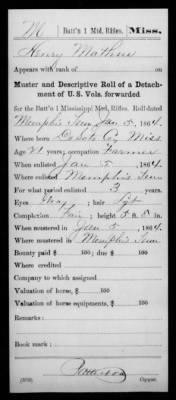 M | Batt'n 1 Mtd. Rifles. | Miss.
Henry Mathus
Appears with rank of on
Muster and Descriptive Roll of a Detach-
ment of U. S. Vols. forwarded
for the Batt'n 1 Mississippi Mtd. Rifles. Roll dated
Memphis Tenn Jan 5, 1864.
Where born De Soto Co, Miss.
Age 21 years; occupation Farmer
When enlisted Jan 5, 1864.
Where enlisted Memphis Tenn
For what period enlisted 3 years.
Eyes Gray; hair Lgt
Complexion Fair; height 5 ft. 8 in.
When mustered in Jan 5, 1864.
Where mustered in Memphis Tenn
Bounty paid $ 100; due $ 100
Where credited
Company to which assigned
Valuation of horse, $ 100
Valuation of horse equipments, $ 100
Remarks:
Book mark:
Copyist.